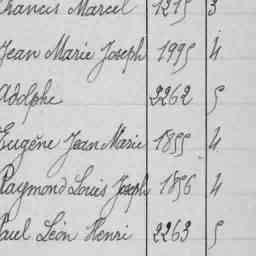 Francis Marcel 1215 3
Jean Marie Joseph 1995 4
Adolphe 2262 5
Eugène Jean Marie 1855 4
Raymond Louis Joseph 1856 4
Paul Léon Henri 2263 5